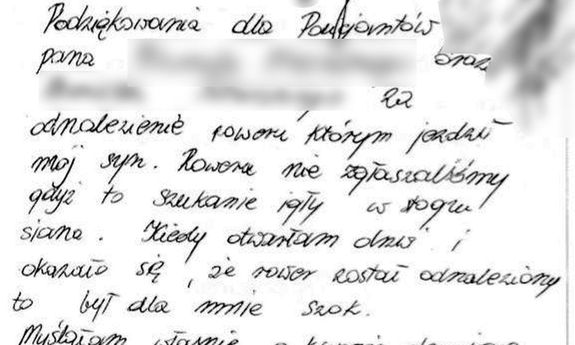 Podziękowania dla Policjantów
pana oraz
za
odnalezienie roweru, którym jeździł
mój syn. Roweru nie zgłaszaliśmy
gdyż to szukanie igły w stogu
siana. Kiedy otwarłam drzwi i
okazało się, że rower został odnaleziony
to był dla mnie szok.
Myślałam właśnie o